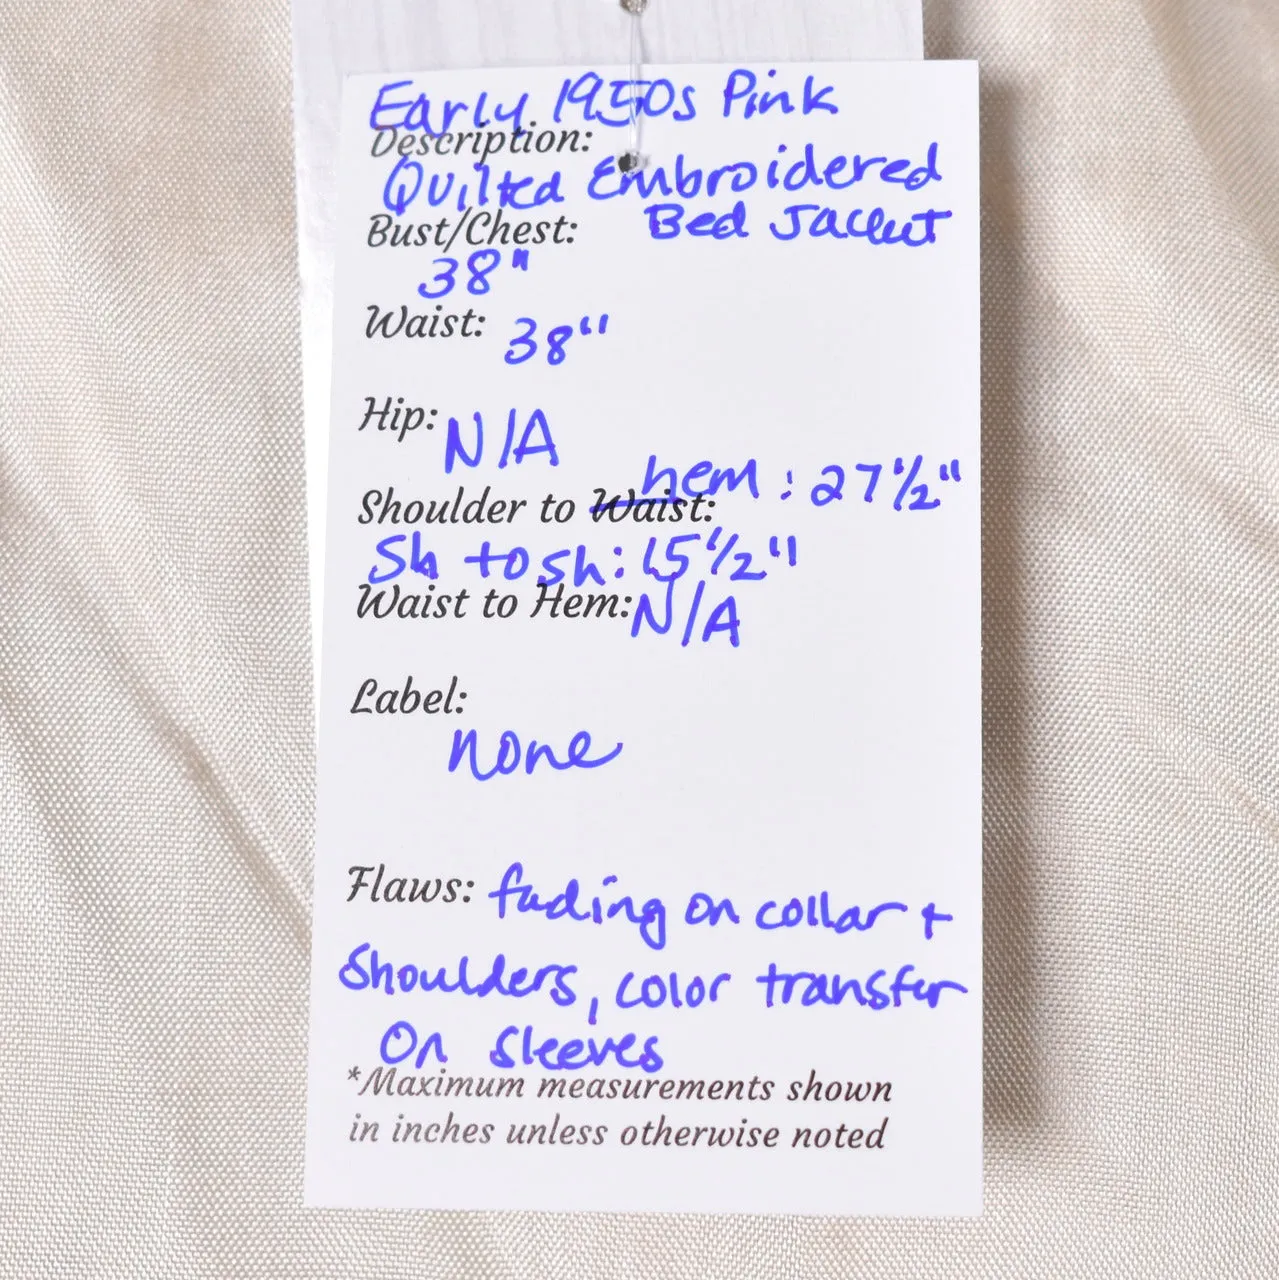 Early 1950s Pink
Description:
Quilted Embroidered
Bust/Chest: Bed Jacket
38"
Waist: 38"
Hip: N/A
hem: 27 1/2"
Shoulder to Waist:
Sh to sh: 15 1/2"
Waist to Hem: N/A
Label:
none
Flaws: fading on collar +
shoulders, color transfer
on sleeves
*Maximum measurements shown
in inches unless otherwise noted